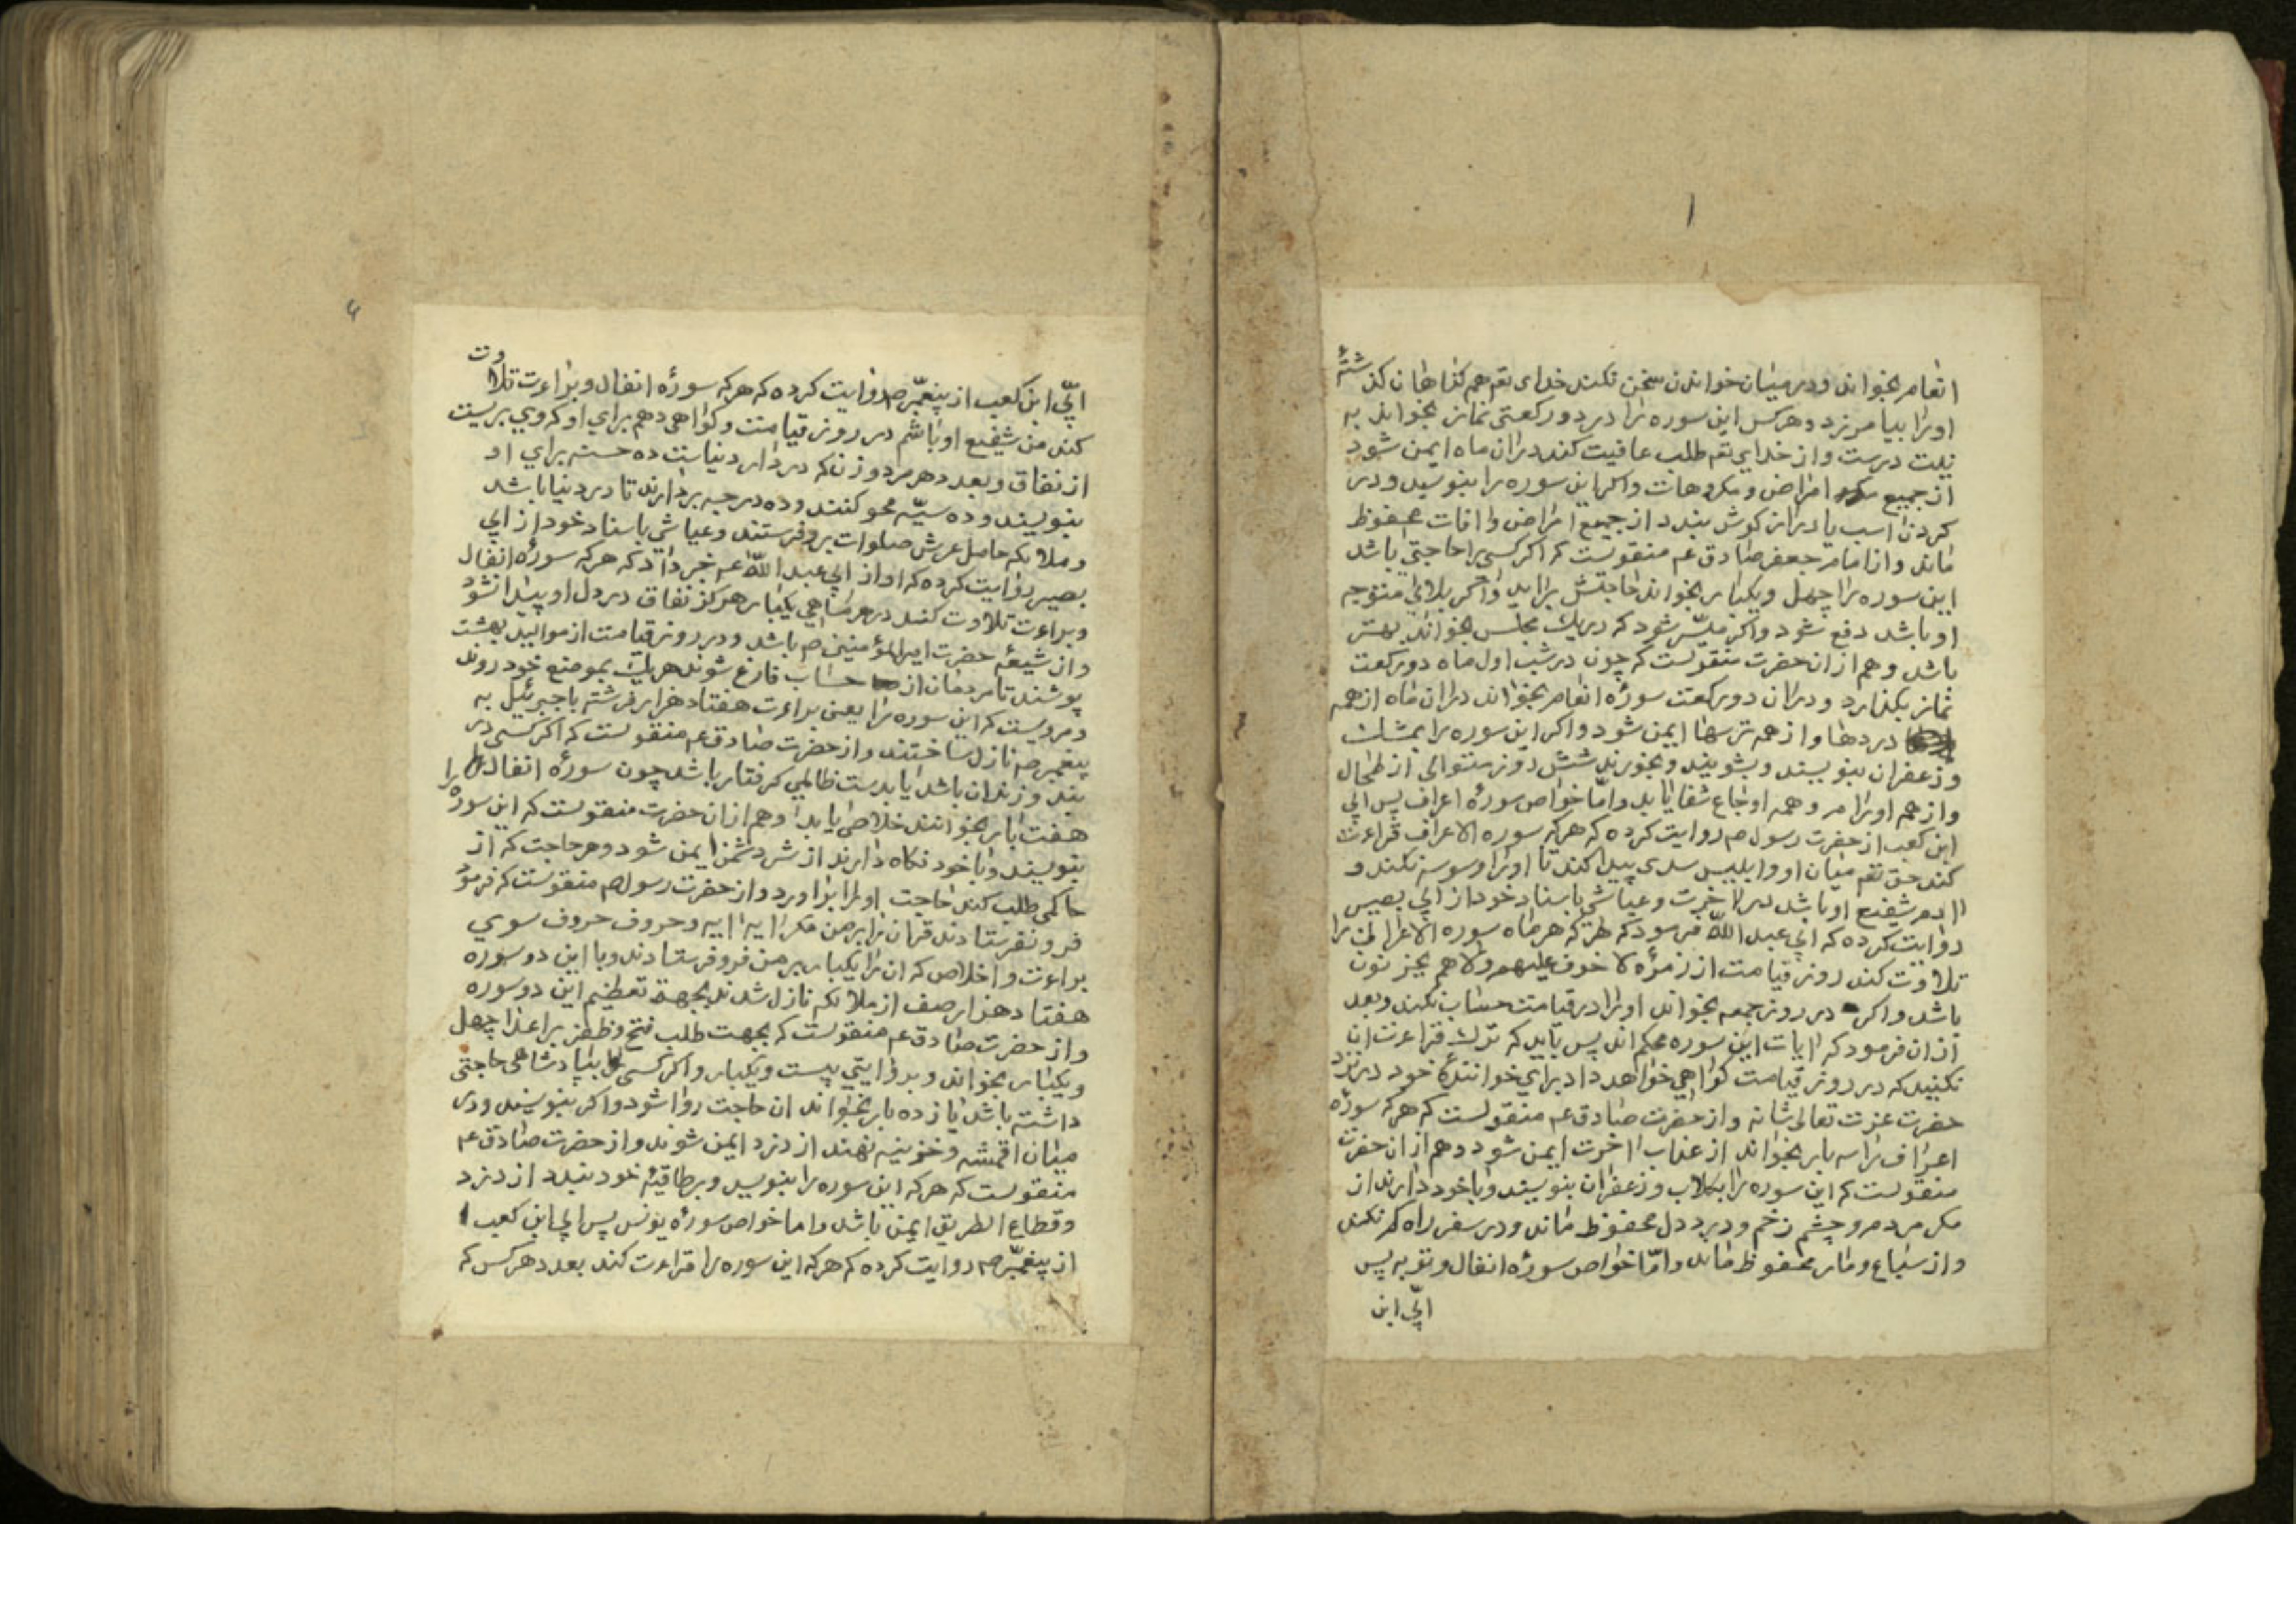 انعام بخواند و در میان خواندن سخن نکند خدای تعم همه کناهان کذشتهٔ
او را بیامرزد و هر کس این سوره را در دو رکعتی نماز بخواند به
نیت درست و از خدای تعم طلب عافیت کند دران ماه ایمن شود
از جمیع امراض و مکروهات و اکر این سوره را بنویسد و در
کردن اسب یا دراز کوش بندد از جمیع امراض و افات محفوظ
ماند و از امام جعفر صادق عم منقولست که اکر کسی را حاجتی باشد
این سوره را چهل و یکبار بخواند حاجتش براید و اکر بلائی متوجه
او باشد دفع شود و اکر میسّر شود که در یک مجلس بخواند بهتر
باشد و هم از ان حضرت منقولست که چون در شب اول ماه دو رکعت
نماز بکذارد و در ان دو رکعت سورهٔ انعام بخواند در ان ماه از همه
دردها و از همه ترسها ایمن شود و اکر این سوره را بمشک
و زعفران بنویسند و بشویند و بخورند شش روز متوالی از طحال
و از همه اورام و همه اوجاع شفا یابد و امّا خواص سورهٔ اعراف پس ابی
ابن کعب از حضرت رسول صم روایت کرده که هرکه سوره الاعراف قراءت
کند حق تعم میان او و ابلیس سدی پیدا کند تا او را وسوسه نکند و
اادم شفیع او باشد در الاخرت و عیاشی باسناد خود از ابی بصیر
روایت کرده که ابی عبد اللّه فرمود که هرکه هر ماه سوره الاعراف را
تلاوت کند روز قیامت از زمرهٔ لا خوف علیهم ولا هم یحزنون
باشد و اکر در روز جمعه بخواند او را در قیامت حساب نکند و بعد
از ان فرمود که اایات این سوره محکم اند پس باید که ترک قراءت ان
نکنید که در روز قیامت کواهی خواهد داد برای خوانندهٔ خود در نزد
حضرت عزت تعالی شانه و از حضرت صادق عم منقولست که هرکه سورهٔ
اعراف را سه بار بخواند از عذاب ااخرت ایمن شود و هم از ان حضرت
منقولست که این سوره را بکلاب و زعفران بنویسند و با خود دارند از
مکر مردم و چشم زخم و درد دل محفوظ ماند و در سفر راه کم نکند
و از سباع و مار محفوظ ماند و امّا خواص سورهٔ انفال و توبه پس
ابیّ ابن
ابیّ ابن کعب از پیغمبّر صم روایت کرده که هرکه سورهٔ انفال و براءت تلاوت
کند من شفیع او باشم در روز قیامت و کواهی دهم برای او که وی بریست
از نفاق و بعدد هر مرد و زن که در دار دنیاست ده حسنه برای او
بنویسند و ده سیّه محو کنند و ده درجه بردارند تا در دنیا باشد
و ملائکه حامل عرش صلوات برو فرستند و عیاشی باسناد خود از ابی
بصیر روایت کرده که او از ابی عبد اللّه عم خبر داد که هرکه سورهٔ انفال
و براءت تلاوت کند در هر ماهی یکبار هرکز نفاق در دل او پیدا نشود
و از شیعهٔ حضرت امیرالمؤمنین صم باشد و در روز قیامت از موائید بهشت
پوشند تا مردمان از حساب فارغ شوند هر یک بموضع خود روند
و مرویست که این سوره را یعنی براءت هفتاد هزار فرشته با جبرئیل به
پیغمبر صم نازل ساختند و از حضرت صادق عم منقولست که اکر کسی در
بند و زندان باشد یا بدست ظالمی کرفتار باشد چون سورهٔ انفال را
هفت بار بخوانند خلاصی یابد و هم از ان حضرت منقولست که این سورهٔ را
بنویسند و با خود نکاه دارند از شر دشمن ایمن شود و هر حاجت که از
حاکمی طلب کند حاجت او را براورد و از حضرت رسول صم منقولست که فرمود
فرو نفرستادند قران را بر من مکر اایه اایه و حروف حروف سوی
براءت و اخلاص که ان را یکبار بر من فرو فرستادند و با این دو سوره
هفتاد هزار صف از ملائکه نازل شدند بجهة تعظیم این دو سوره
و از حضرت صادق عم منقولست که بجهت طلب فتح و ظفر بر اعدا چهل
و یکبار بخواند و بروایتی بیست و یکبار و اکر کسی بپادشاهی حاجتی
داشته باشد یازده بار بخواند ان حاجت روا شود و اکر بنویسند و در
میان اقمشه و خزینه نهند از دزد ایمن شوند و از حضرت صادق عم
منقولست که هرکه این سوره را بنویسد و بر طاقیهٔ خود بندد از دزد
و قطاع الطریق ایمن باشد و اما خواص سورهٔ یونس پس ابی ابن کعب
از پیغمبّر صم روایت کرده که هرکه این سوره را قراءت کند بعدد هر کس که